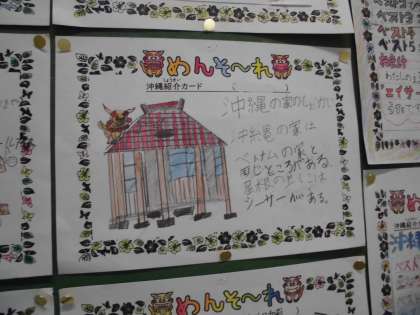 めんそ〜れ
沖縄紹介カード ( )
沖縄の家のしょうかい
沖縄の家は
ベトナムの家と
同じところがある。
屋根の上には
シーサーがある。
ベスト
エイサー
めんそ〜れ
めんそ
沖縄紹介
沖縄
ベスト